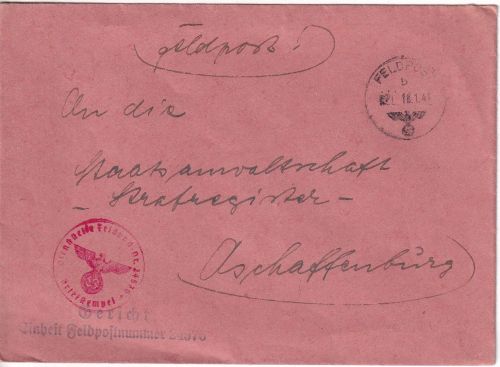 Feldpost!
FELDPOST
b
18.1.41
An die
Staatsanwaltschaft
- Strafregister -
Aschaffenburg
Dienststelle Feldpostnr.
Briefstempel
Gericht
Einheit Feldpostnummer 24976